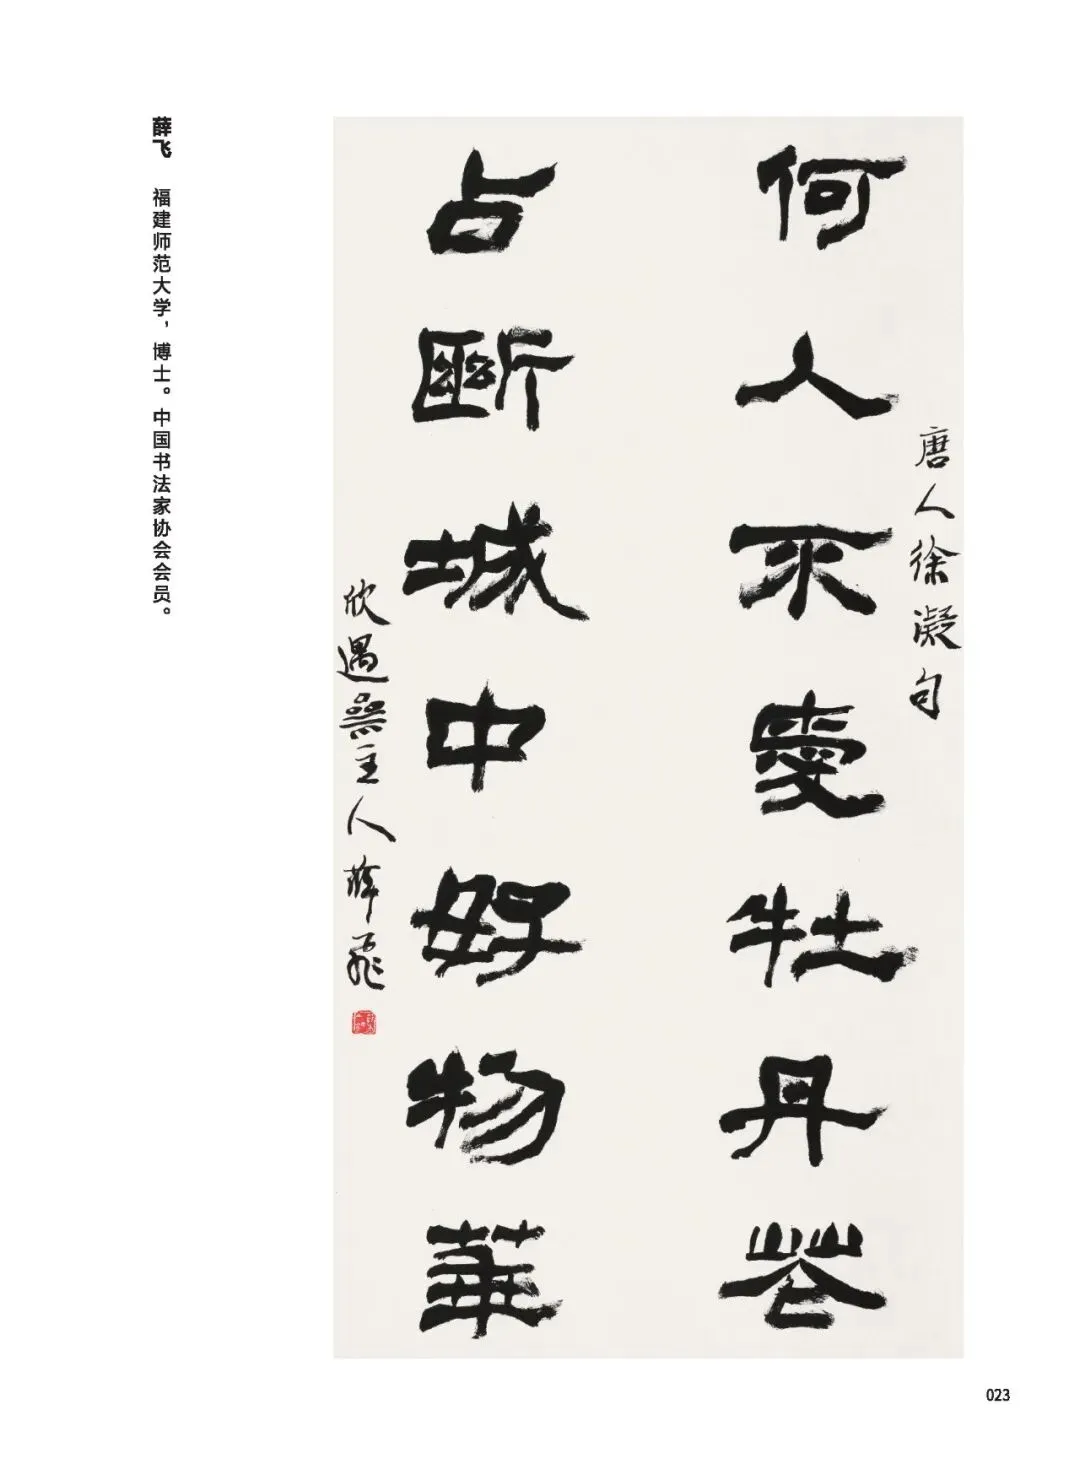 唐人徐凝句
何人不愛牡丹花
占斷城中好物華
欣遇齋主人薛飛
薛飞 福建师范大学，博士。中国书法家协会会员。
023